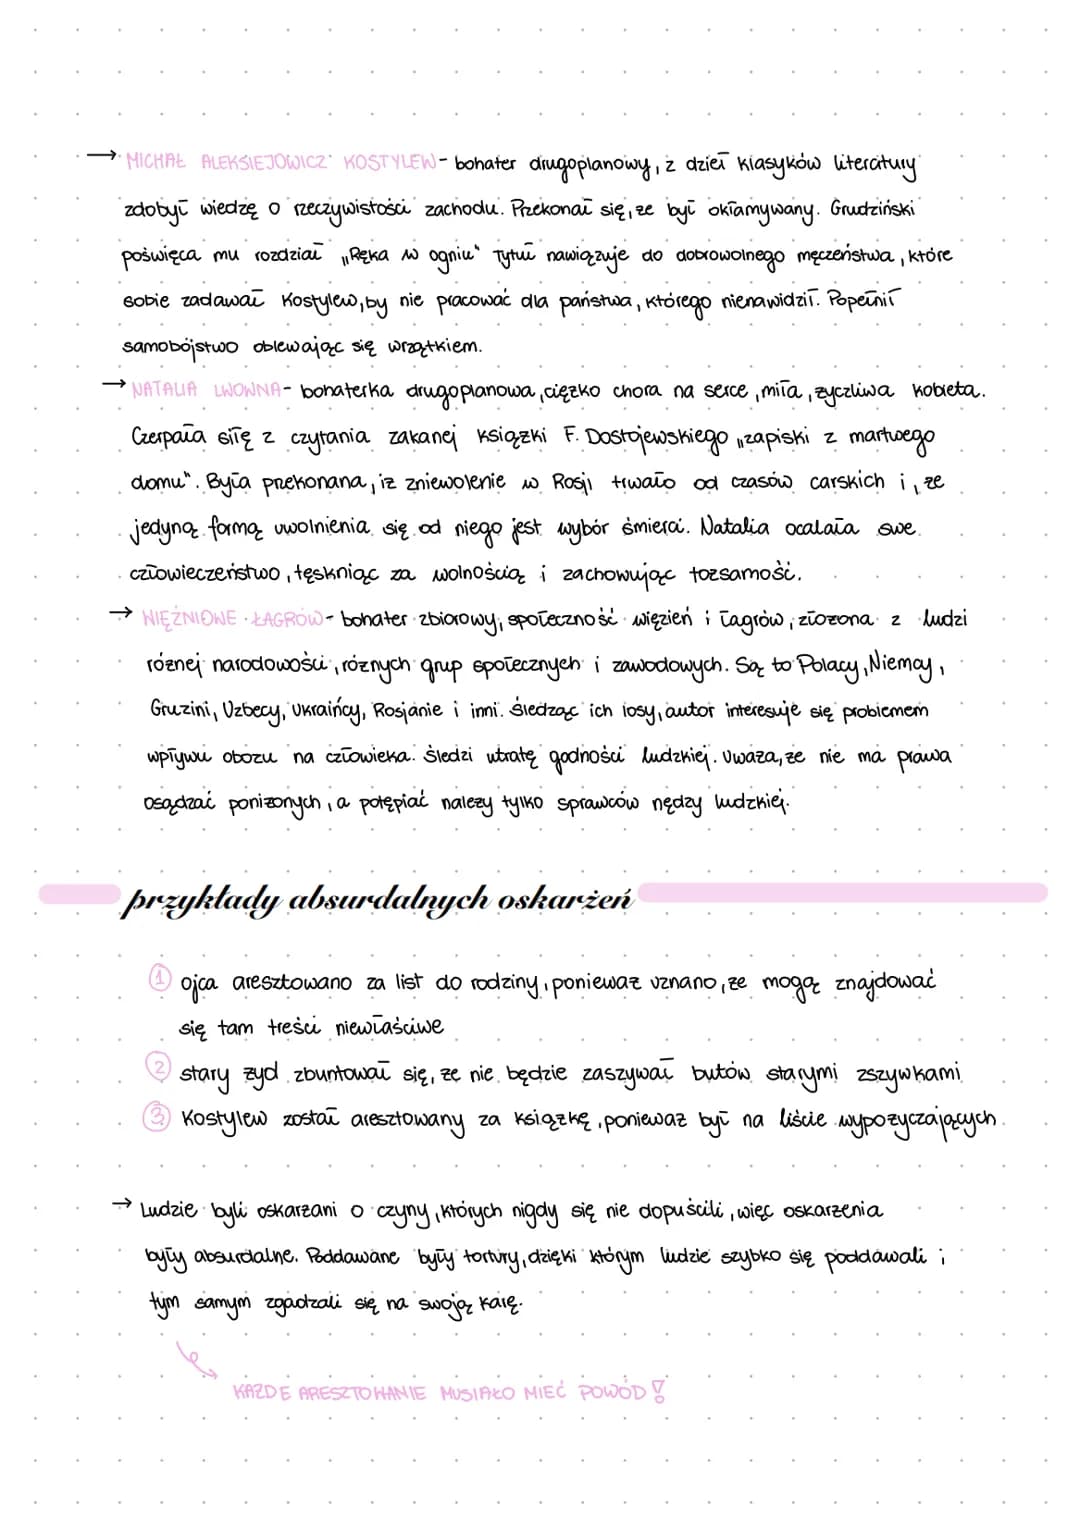 → MICHAŁ ALEKSIEJOWICZ KOSTYLEW - bohater drugoplanowy, z dzieł klasyków literatury
zdobył wiedzę o rzeczywistości zachodu. Przekonał się, że był okłamywany. Grudziński
poświęca mu rozdział „Ręka w ogniu" Tytuł nawiązuje do dobrowolnego męczeństwa, które
sobie zadawał Kostylew, by nie pracować dla państwa, którego nienawidził. Popełnił
samobójstwo oblewając się wrzątkiem.
→ NATALIA LWOWNA - bohaterka drugoplanowa, ciężko chora na serce, miła, życzliwa kobieta.
Czerpała siłę z czytania zakanej książki F. Dostojewskiego „zapiski z martwego
domu". Była przekonana, iż zniewolenie w Rosji trwało od czasów carskich i, że
jedyną formą uwolnienia się od niego jest wybór śmierci. Natalia ocalała swe
człowieczeństwo, tęskniąc za wolnością i zachowując tożsamość.
→ WIĘŹNIOWIE ŁAGRÓW - bohater zbiorowy, społeczność więzień i łagrów, złożona z ludzi
różnej narodowości, różnych grup społecznych i zawodowych. Są to Polacy, Niemcy,
Gruzini, Uzbecy, Ukraińcy, Rosjanie i inni. Śledząc ich losy, autor interesuje się problemem
wpływu obozu na człowieka. Śledzi utratę godności ludzkiej. Uważa, że nie ma prawa
osądzać poniżonych, a potępiać należy tylko sprawców nędzy ludzkiej.
przykłady absurdalnych oskarżeń
1 ojca aresztowano za list do rodziny, ponieważ uznano, że mogą znajdować
się tam treści niewłaściwe
2 stary żyd zbuntował się, że nie będzie zaszywał butów starymi zszywkami
3 Kostylew został aresztowany za książkę, ponieważ był na liście wypożyczających.
→ Ludzie byli oskarżani o czyny, których nigdy się nie dopuścili, więc oskarżenia
były absurdalne. Poddawane były tortury, dzięki którym ludzie szybko się poddawali i
tym samym zgadzali się na swoją karę.
KAŻDE ARESZTOWANIE MUSIAŁO MIEĆ POWÓD!